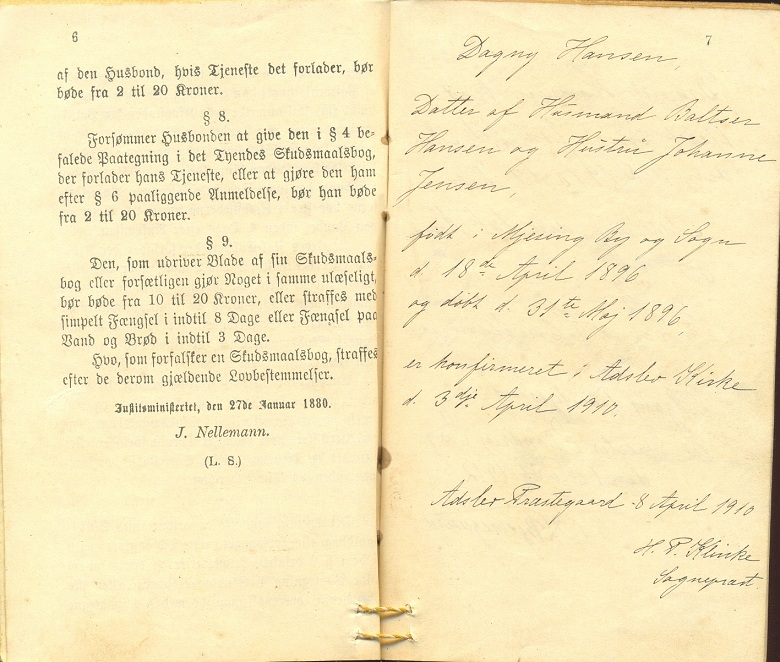 6
af den Husbond, hvis Tjeneste det forlader, bør
bøde fra 2 til 20 Kroner.
§ 8.
Forsømmer Husbonden at give den i § 4 be-
falede Paategning i det Tyendes Skudsmaalsbog,
der forlader hans Tjeneste, eller at gjøre den ham
efter § 6 paaliggende Anmeldelse, bør han bøde
fra 2 til 20 Kroner.
§ 9.
Den, som udriver Blade af sin Skudsmaals-
bog eller forsætligen gjør Noget i samme ulæseligt,
bør bøde fra 10 til 20 Kroner, eller straffes med
simpelt Fængsel i indtil 8 Dage eller Fængsel paa
Vand og Brød i indtil 3 Dage.
Hvo, som forfalsker en Skudsmaalsbog, straffes
efter de derom gjældende Lovbestemmelser.
Justitsministeriet, den 27de Januar 1880.
J. Nellemann.
(L. S.)
7
Dagny Hansen,
Datter af Husmand Baltser
Hansen og Hustru Johanne
Jensen,
født i Mjesing By og Sogn
d. 18de April 1896
og døbt d. 31te Maj 1896,
er konfirmeret i Adslev Kirke
d. 3dje April 1910.
Adslev Præstegaard 8 April 1910
H. P. Klinke
Sognepræst.